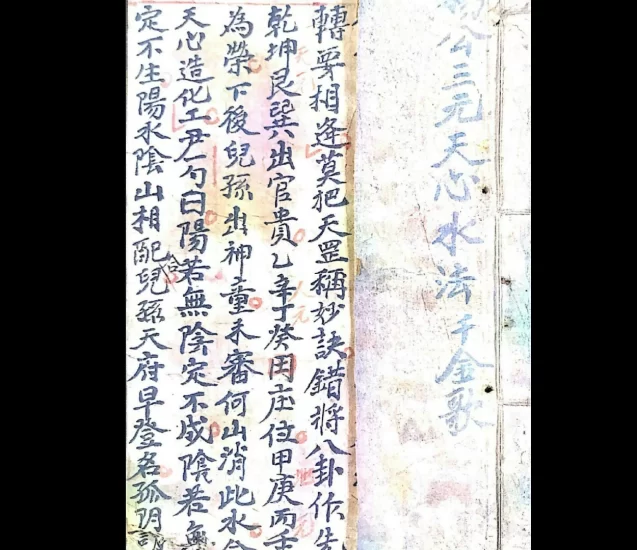 公三元天心水法千金歌
轉要相逢莫把天罡稱妙訣錯將八卦作先
乾坤艮巽出官貴乙辛丁癸田庄位甲庚丙壬
為榮下後兒孫出神童未審何山消此水合
天心造化工尹一句曰陽若無陰定不成陰若無
定不生陽水陰山相配合兒孫天府早登名孤阴
人元
元